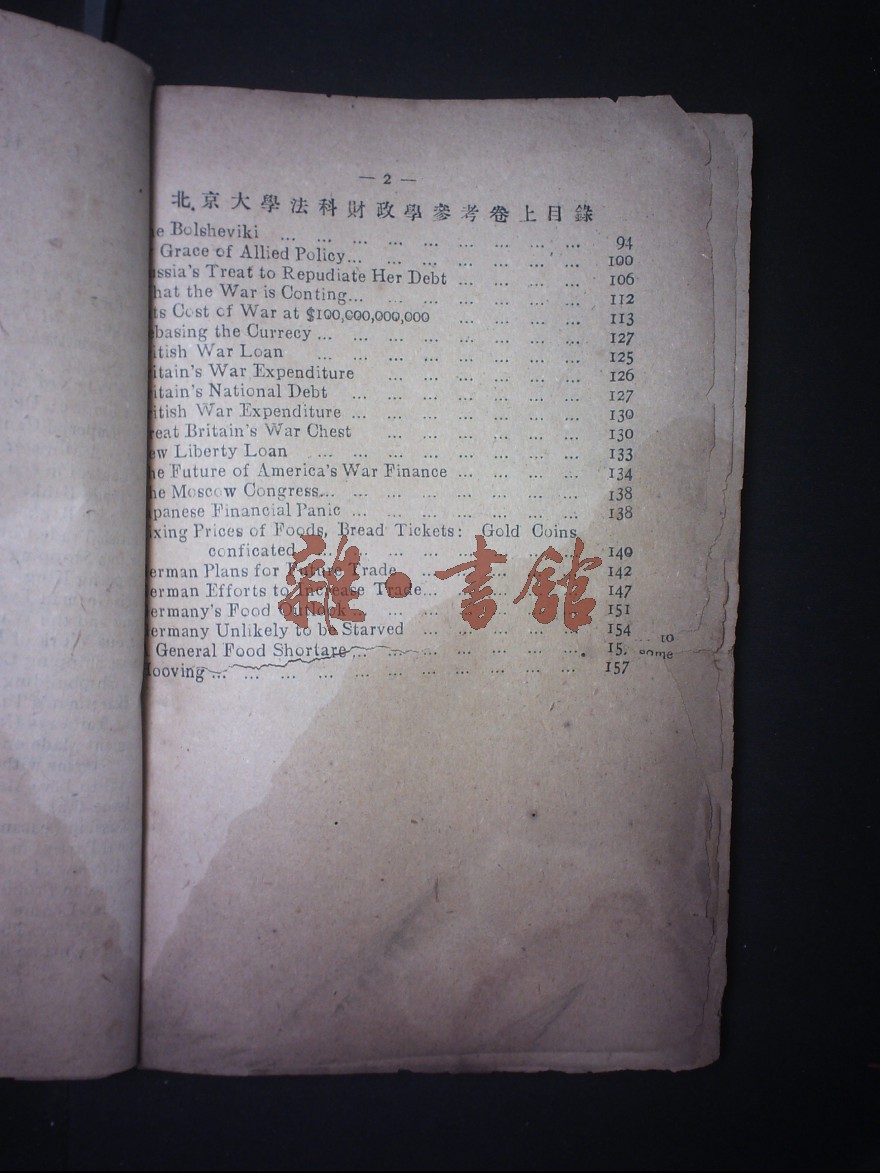 — 2 —
北京大學法科財政學參考卷上目錄
e Bolsheviki ... ... ... ... ... ... ... ... ... 94
Grace of Allied Policy... ... ... ... ... ... ... 100
ussia's Treat to Repudiate Her Debt ... ... ... ... 106
hat the War is Conting... ... ... ... ... ... ... 112
ts Cost of War at $100,000,000,000 ... ... ... ... 113
basing the Currecy ... ... ... ... ... ... ... ... 127
itish War Loan ... ... ... ... ... ... ... ... 125
itain's War Expenditure ... ... ... ... ... ... 126
itain's National Debt ... ... ... ... ... ... ... 127
itish War Expenditure ... ... ... ... ... ... ... 130
reat Britain's War Chest ... ... ... ... ... ... 130
ew Liberty Loan ... ... ... ... ... ... ... ... 133
he Future of America's War Finance ... ... ... ... 134
he Moscow Congress... ... ... ... ... ... ... ... 138
apanese Financial Panic ... ... ... ... ... ... ... 138
ixing Prices of Foods, Bread Tickets: Gold Coins
conficated ... ... ... ... ... ... ... ... 140
erman Plans for Future Trade ... ... ... ... ... 142
erman Efforts to Increase Trade... ... ... ... ... 147
ermany's Food Outlook ... ... ... ... ... ... ... 151
ermany Unlikely to be Starved ... ... ... ... ... 154
General Food Shortare ... ... ... ... ... ... 15
ooving ... ... ... ... ... ... ... ... ... ... 157
to
some
雜·書館